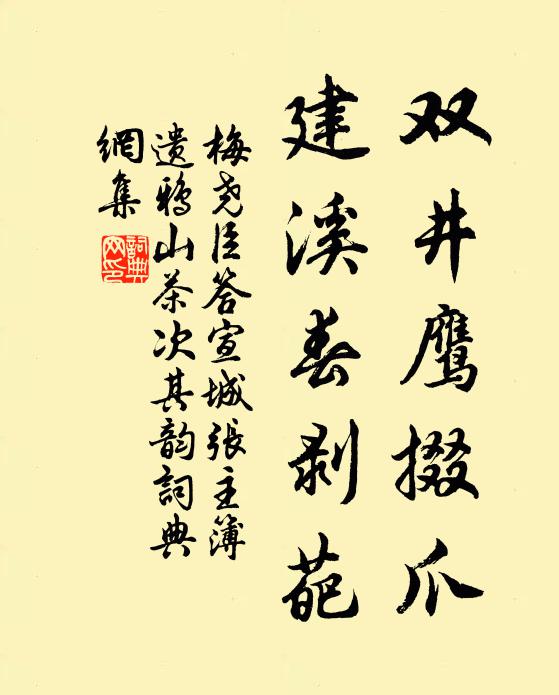 双井鹰掇爪
建溪春剥葩
梅尧臣答宣城張主簿
遗鸦山茶次其韵詞典
網集
詞典網印